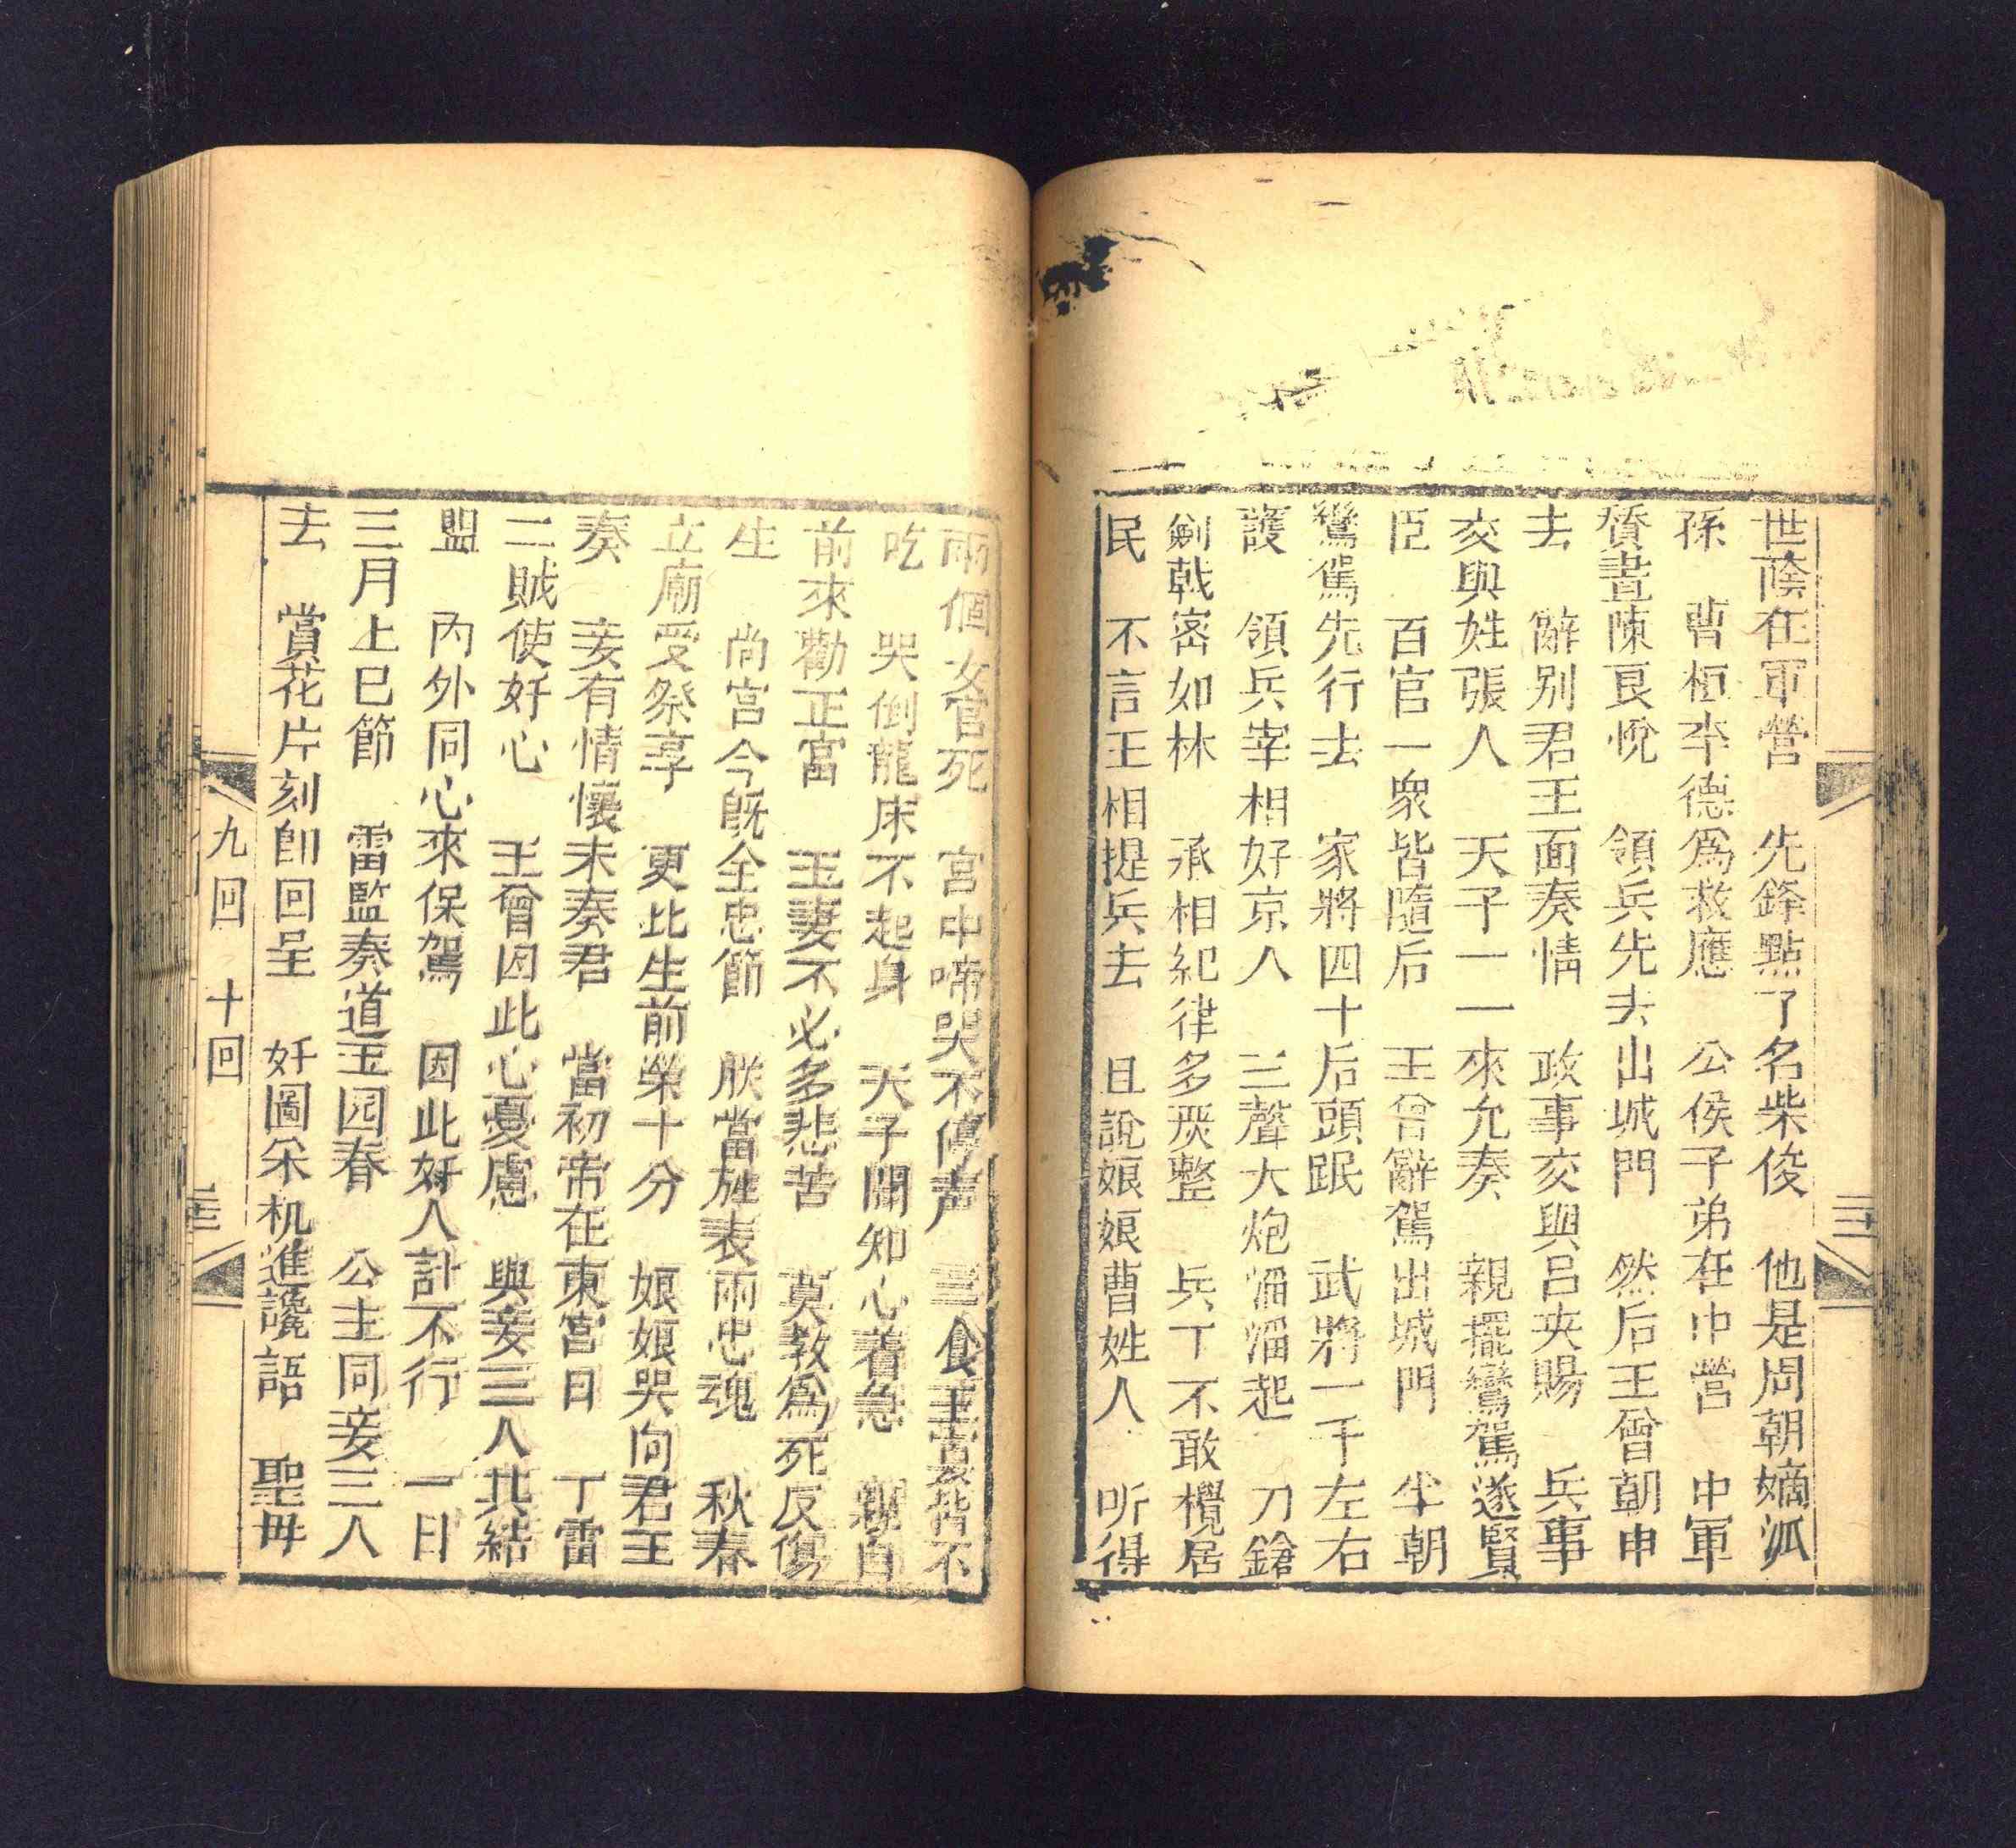 世蔭在軍營　先鋒點了名柴俊　他是周朝嫡派
孫　曹桓李德為救應　公侯子弟在中營　中軍
賛畫陳艮悅　領兵先去出城門　然后王曾朝申
去　辭别君王面奏情　政事交與呂夷賜　兵事
交與姓張人　天子一一來允奏　親擺鸞駕送賢
臣　百官一衆皆隨后　王曾辭駕出城門　半朝
鸞駕先行去　家將四十后頭跟　武將一千左右
護　領兵宰相好京人　三聲大炮滔滔起　刀鎗
劍戟密如林　承相紀律多嚴整　兵丁不敢攪居
民　不言王相提兵去　且說娘娘曹姓人　听得
兩個女官死　宮中啼哭不停声　三食王宴皆不
吃　哭倒龍床不起身　天子聞知心着急　親自
前來勸正宮　王妻不必多悲苦　莫教為死反傷
生　尚宮今既全忠節　朕當旌表兩忠魂　秋春
立廟受祭享　更比生前榮十分　娘娘哭向君王
奏　妾有情懷未奏君　當初帝在東宮日　丁雷
二賊使奸心　王曾因此心憂慮　與妾三人共結
盟　內外同心來保駕　因此奸人計不行　一日
三月上巳節　雷監奏道玉园春　公主同妾三人
去　賞花片刻即回呈　奸圖朵机進讒語　聖毋
九回　十回